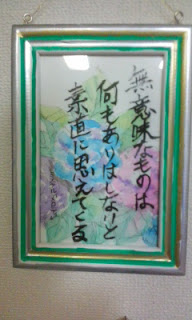 無意味なものは
何もありはしないと
素直に思えてくる